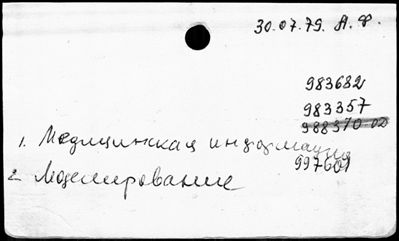 30.07.79. А.Ф.
983682
983357
988370-02
1. Медицинская информация
997601
2. Моделирование